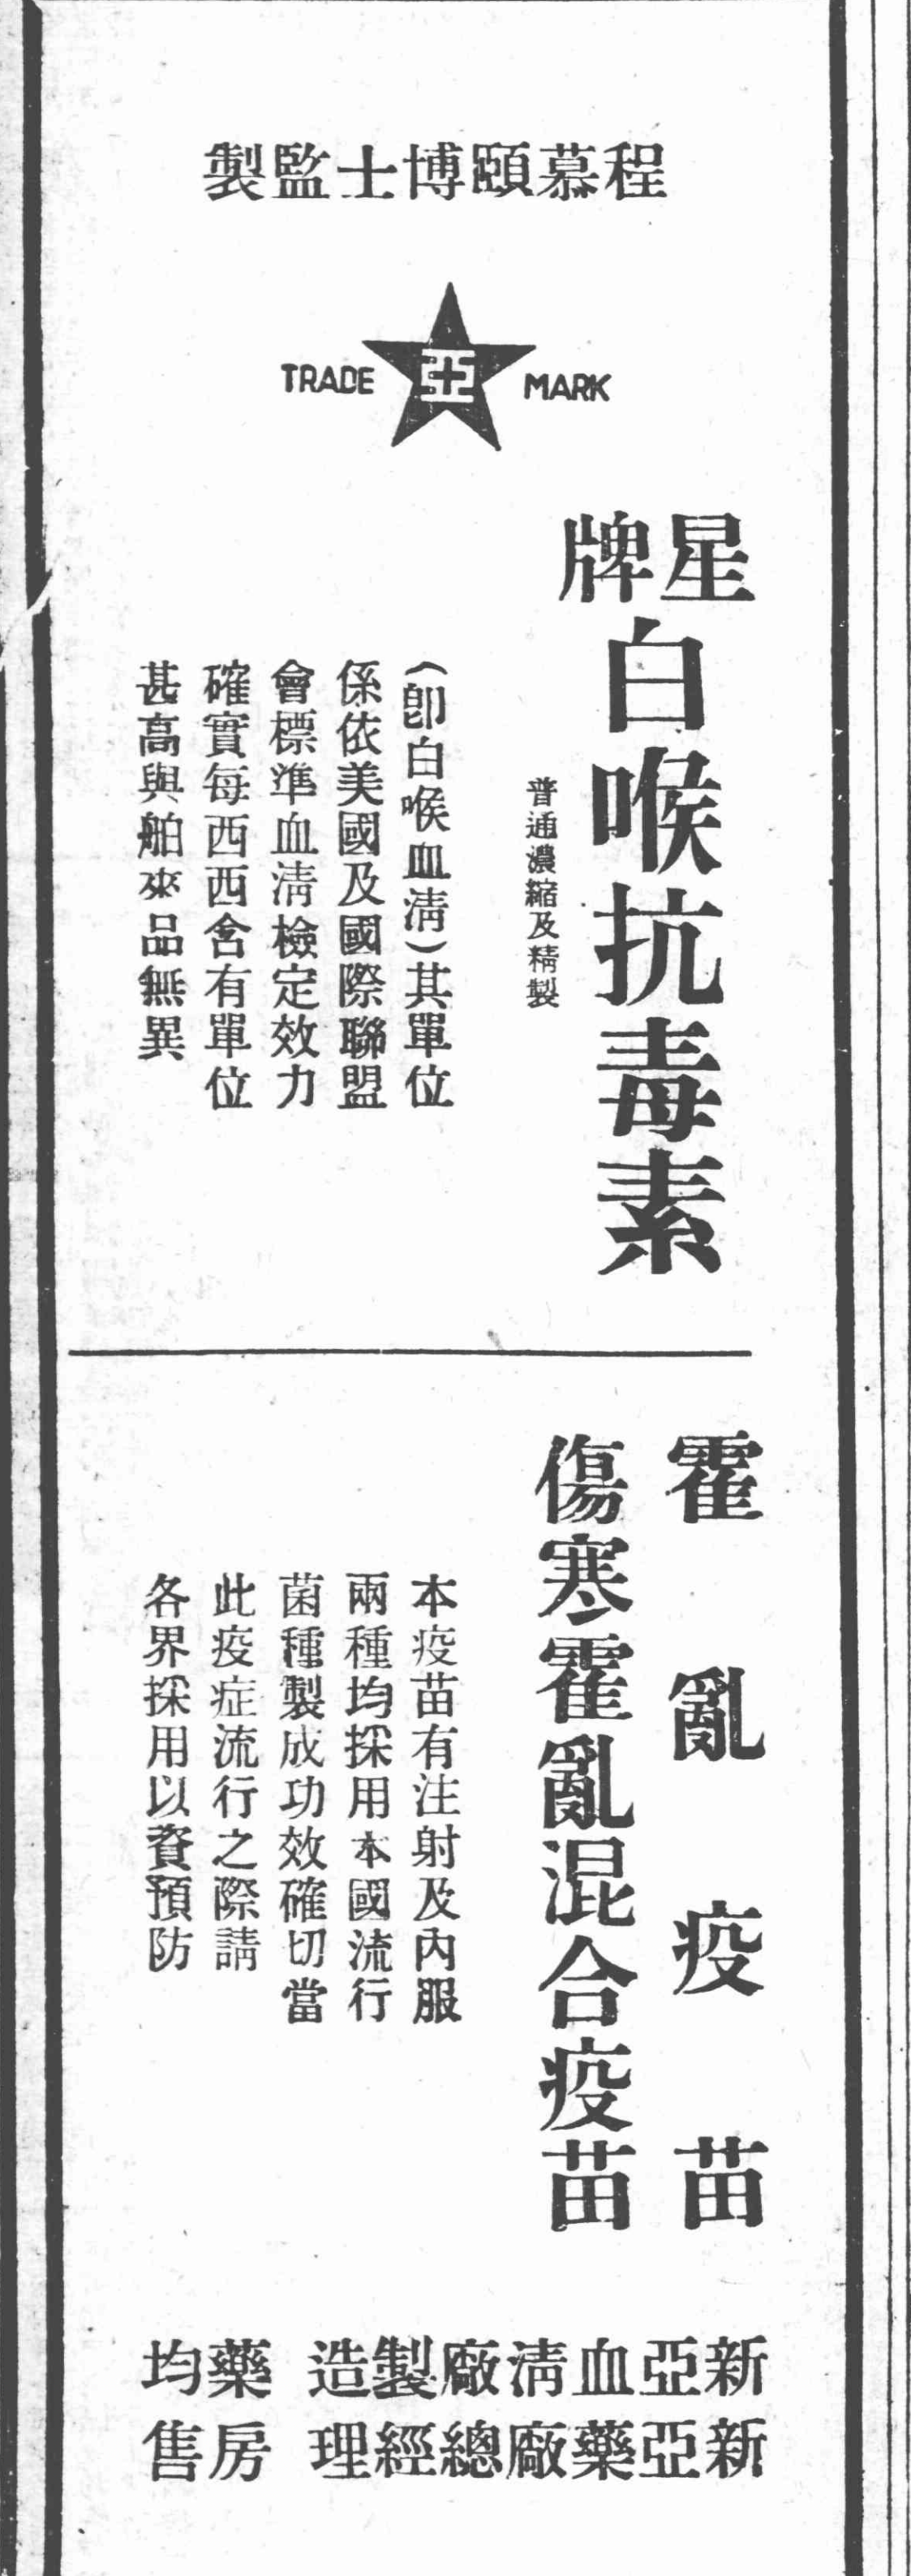 程慕頤博士監製
TRADE 亞 MARK
星牌
白喉抗毒素
普通濃縮及精製
（卽白喉血淸）其單位
係依美國及國際聯盟
會標準血淸檢定效力
確實每西西含有單位
甚高與舶來品無異
霍亂疫苗
傷寒霍亂混合疫苗
本疫苗有注射及內服
兩種均採用本國流行
菌種製成功效確切當
此疫症流行之際請
各界採用以資預防
新亞血淸廠製造
新亞藥廠總經理
藥房均售